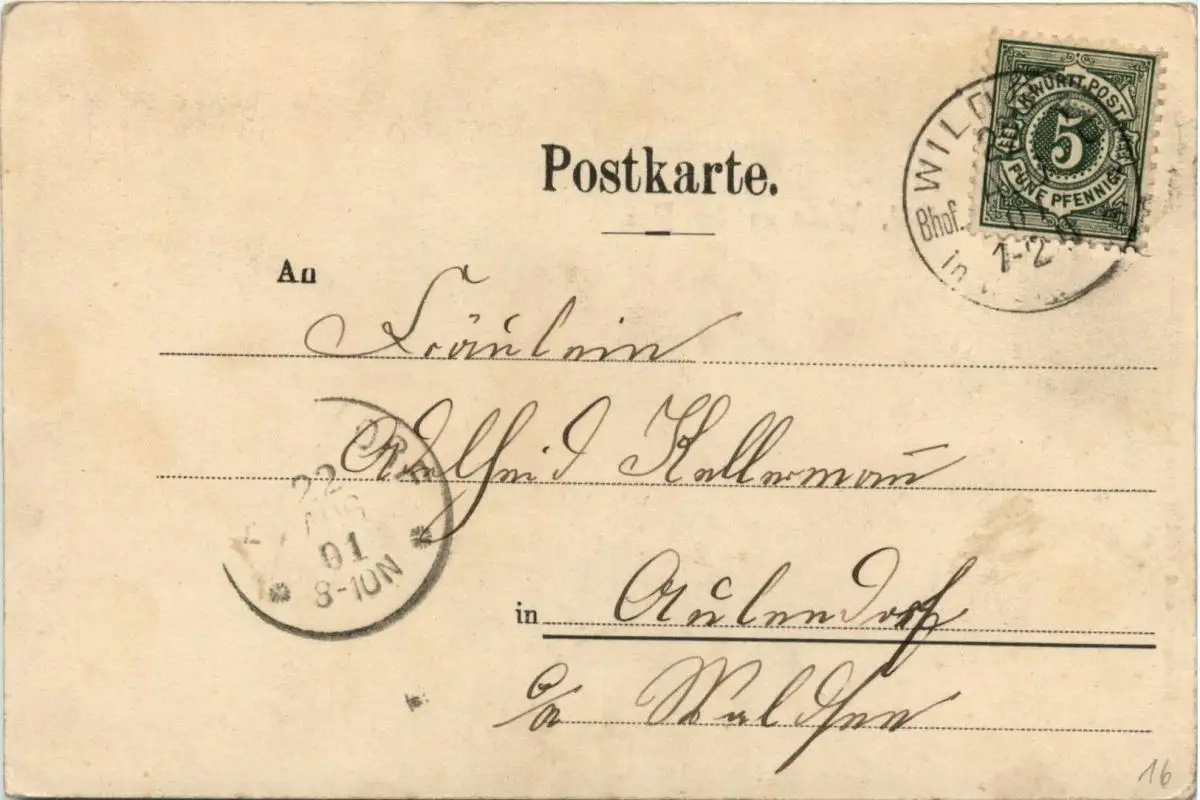 Postkarte.
K. WÜRTT. POST
5
FÜNF PFENNIG
WILD
Bhof.
1-2 N
in W
An
Fräulein
Adelheid Kellerman̄
in Aulendorf
O/A Waldsee
DRF
22
AUG
01
8-10N
16